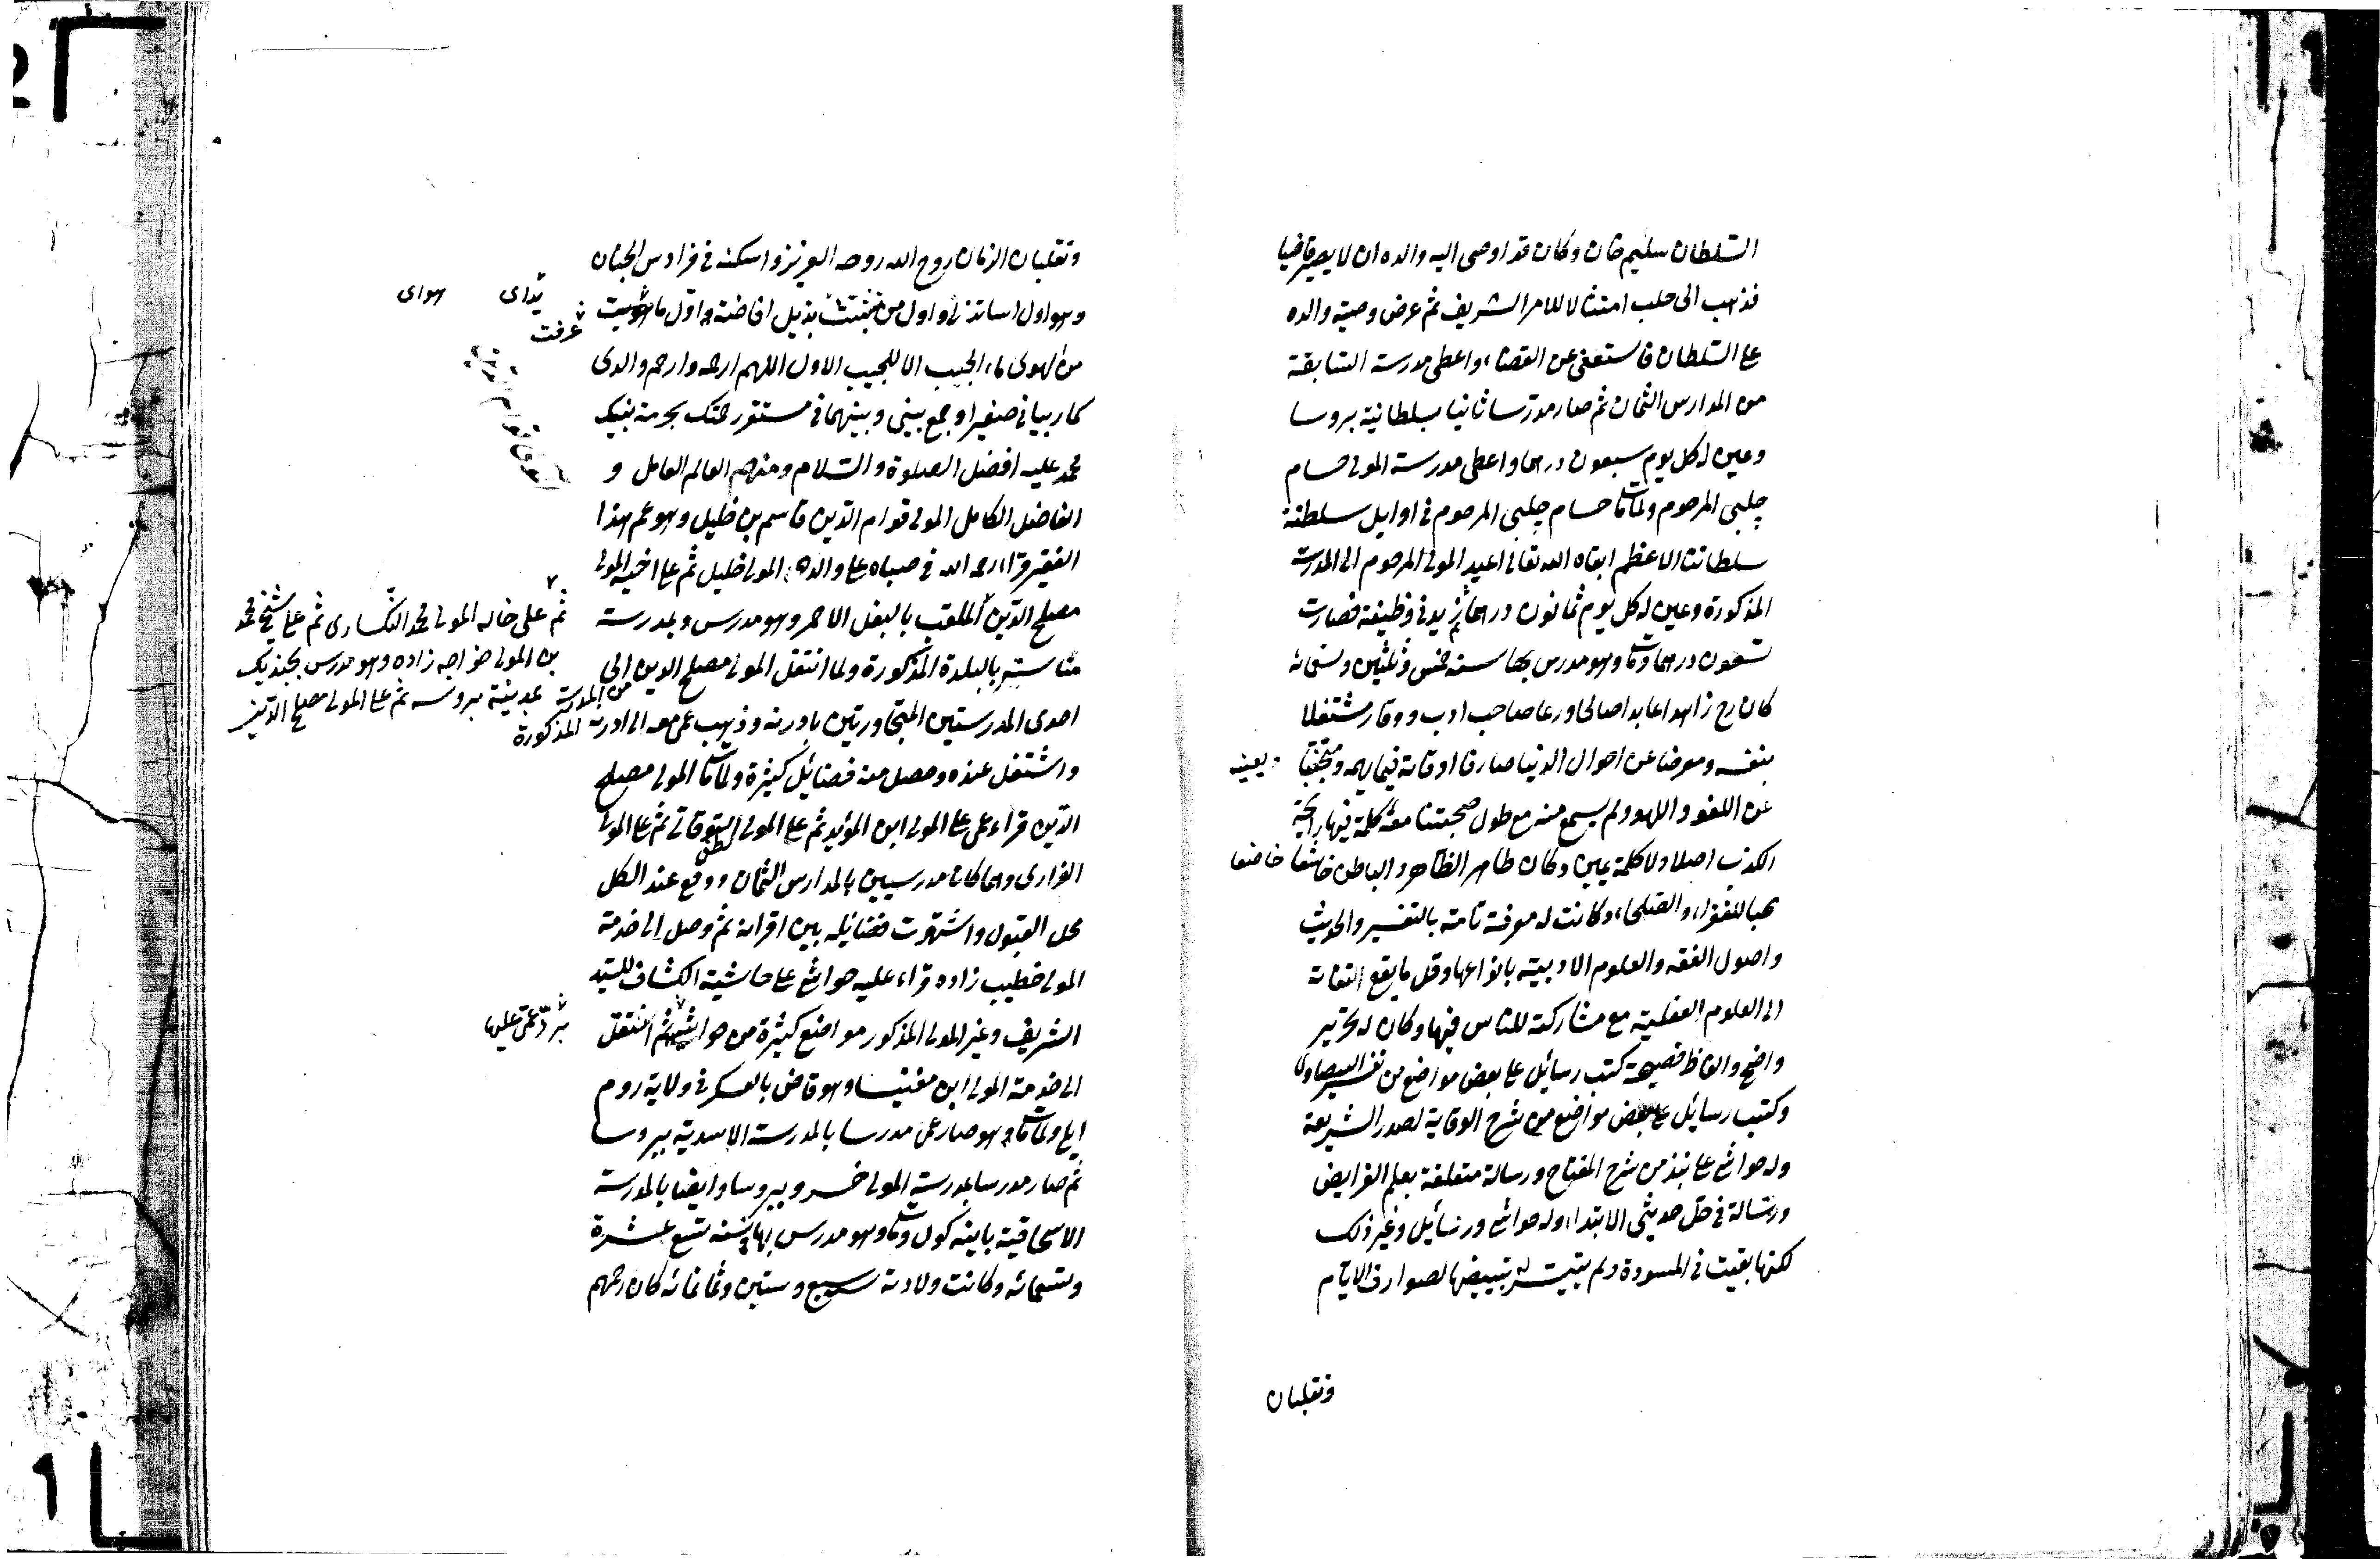 السلطان سليم خان وكان قد اوصى اليه والده ان لا يصير قاضيا
فذهب الى حلب امتثالا للامر الشريف ثم عرض وصية والده
على السلطان فاستعفى عن القضاء واعطى مدرسته السابقة
من المدارس الثمان ثم صار مدرسا ثانيا بسلطانية بروسا
وعين له كل يوم سبعون درهما واعطى مدرسة المولى حسام
چلبي المرحوم ولما مات حسام چلبي المرحوم في اوايل سلطنة
سلطاننا الاعظم ابقاه الله تعالى اعيد المولى المرحوم الى المدرسة
المذكورة وعين له كل يوم ثمانون درهما ثم زيد في وظيفته فصارت
تسعون درهما ومات وهو مدرس بها سنة خمس وثلثين وتسعمائه
كان رح زاهدا عابدا صالحا ورعا صاحب ادب ووقار مشتغلا
بنفسه ومعرضا عن احوال الدنيا صارفا اوقاته فيما يهمه ويعينه ومتجنبا
عن اللغو واللهو ولم يسمع منه مع طول صحبتنا معه كلمة فيها رايحة
الكذب اصلا ولا كلمة يمين وكان طاهر الظاهر والباطن خاشعا خاضعا
محبا للفقراء والصلحاء وكانت له معرفة تامة بالتفسير والحديث
واصول الفقه والعلوم الادبيه بانواعها وقل ما يقع التفاته
الى العلوم العقلية مع مشاركته للناس فيها وكان له تحرير
واضح والفاظ فصيحة كتب رسائل على بعض مواضع من تفسير البيضاوى
وكتب رسائل على بعض مواضع من شرح الوقاية لصدر الشريعة
وله حواش على نبذ من شرح المفتاح ورسالة متعلقة بعلم الفرايض
ورسالة في حل حديثى الابتداء وله حواش ورسائل وغير ذلك
لكنها بقيت في المسودة ولم يتيسر له تبييضها لصوارف الايام
وتقلبان
وتقلبان الزمان روح الله روحه العزيز واسكنه في فراديس الجنان
وهو اول اساتذتي واول من تشبثت بذيل افاضته واول ما هويت
عرفت
هواى
من الهوى ما الحب الا للحبيب الاول اللهم ارحمه وارحم والدى
كما ربيانى صغيرا واجمع بينى وبينهما في مستقر رحمتك بحرمة نبيك
محمد عليه افضل الصلوة والسلام ومنهم العالم العامل و
الفاضل الكامل المولى قوام الدين قاسم بن خليل وهو عم هذا
الفقير قراء رحمه الله في صباه على والده المولى خليل ثم على اخيه المولى
مصلح الدين الملقب بالبغل الاحمر وهو مدرس بمدرسة
مناستر بالبلدة المذكورة ولما انتقل المولى مصلح الدين الى
احدى المدرستين المتجاورتين بادرنه وذهب عمى معه الى ادرنه
ثم على خاله المولى محمد النكسارى ثم على شيخ محمد
بن المولى خواجه زاده وهو مدرس بجنديك
بمدينة بروسه ثم على المولى مصلح الدين
من المدرسة المذكورة
واشتغل عنده وحصل منه فضائل كثيرة ولما مات المولى مصلح
الدين قراء عمى على المولى ابن المؤيد ثم على المولى لطفى التوقاتى ثم على المولى
الفنارى وهما كانا مدرسيين بالمدارس الثمان ووقع عند الكل
محل القبول واشتهرت فضائله بين اقرانه ثم وصل الى خدمة
المولى خطيب زاده قراء عليه حواشى على حاشية الكشاف للسيد
الشريف وغير المولى المذكور مواضع كثيرة من حواشيه ثم انتقل
الى خدمة المولى ابن مغنيسا وهو قاض بالعسكر في ولاية روم
ايلى ولما مات هو صار عمى مدرسا بالمدرسة الاسدية ببروسا
ثم صار مدرسا بمدرسة المولى خسرو ببروسا وايضا بالمدرسة
الاسحاقية باينه كول ومات وهو مدرس بها في سنه تسع عشرة
وتسعمائه وكانت ولادته سبع وستين وثمانمائه كان رحمهم